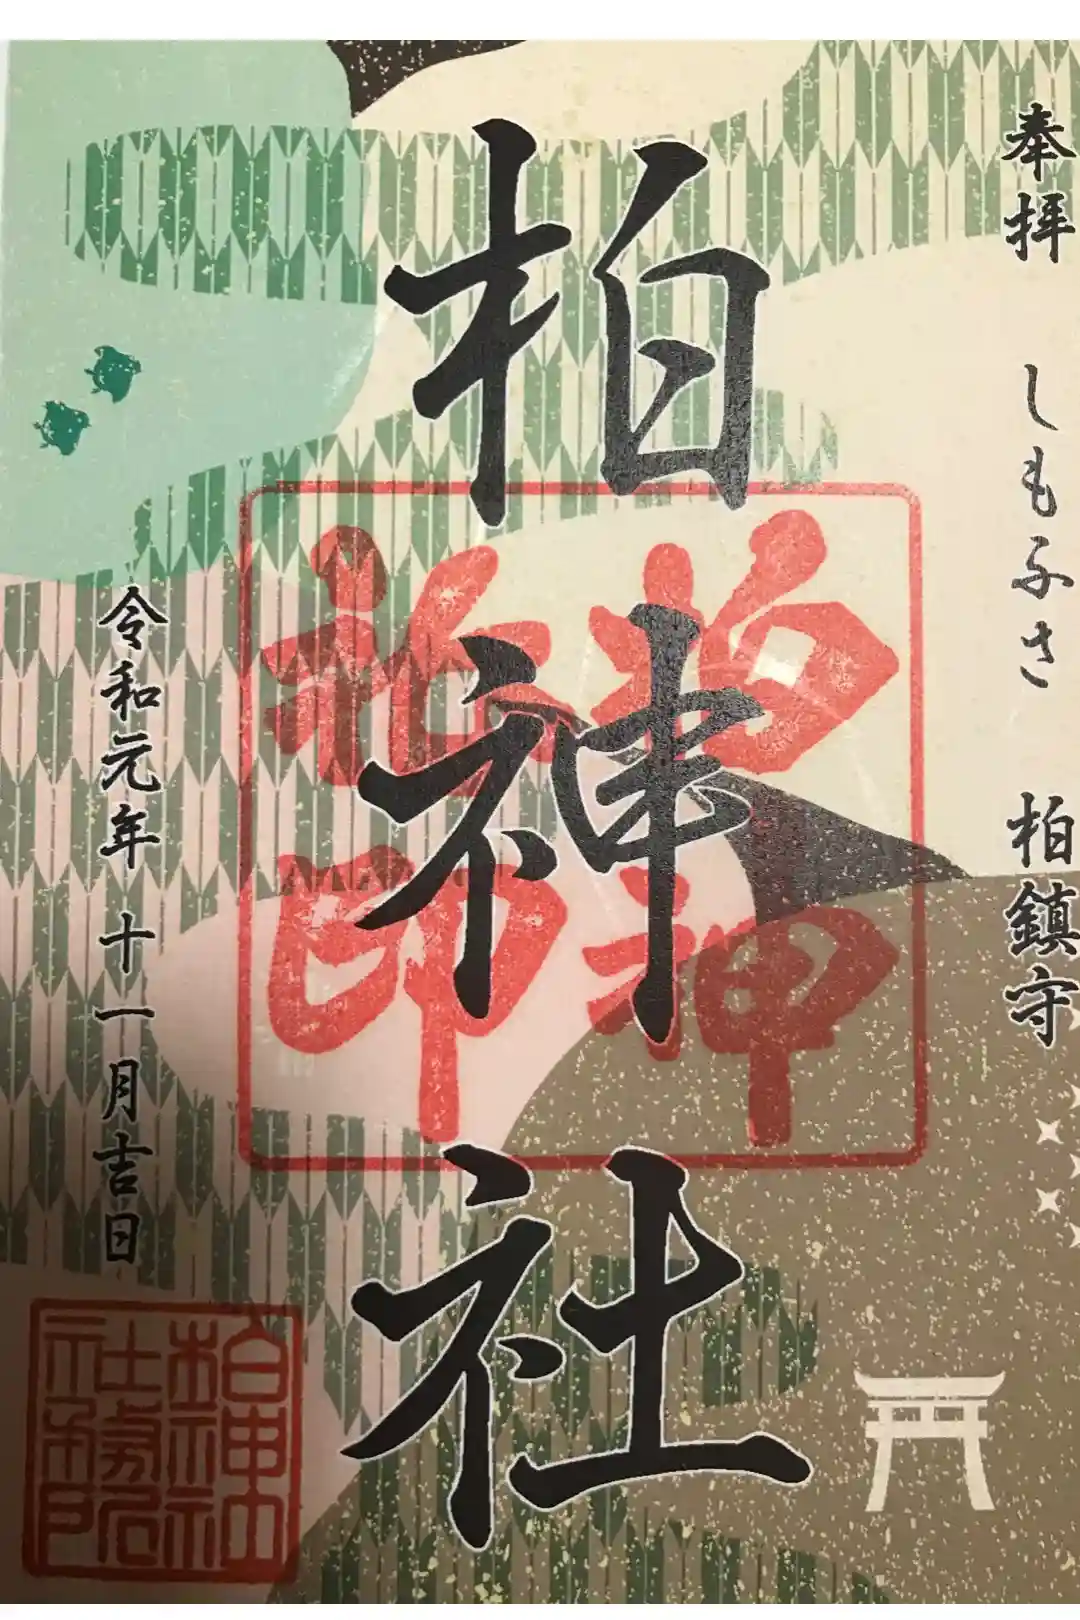 奉拝 しもふさ 柏鎮守
柏神社
柏神社印
令和元年 十一月吉日
柏神社
社務所